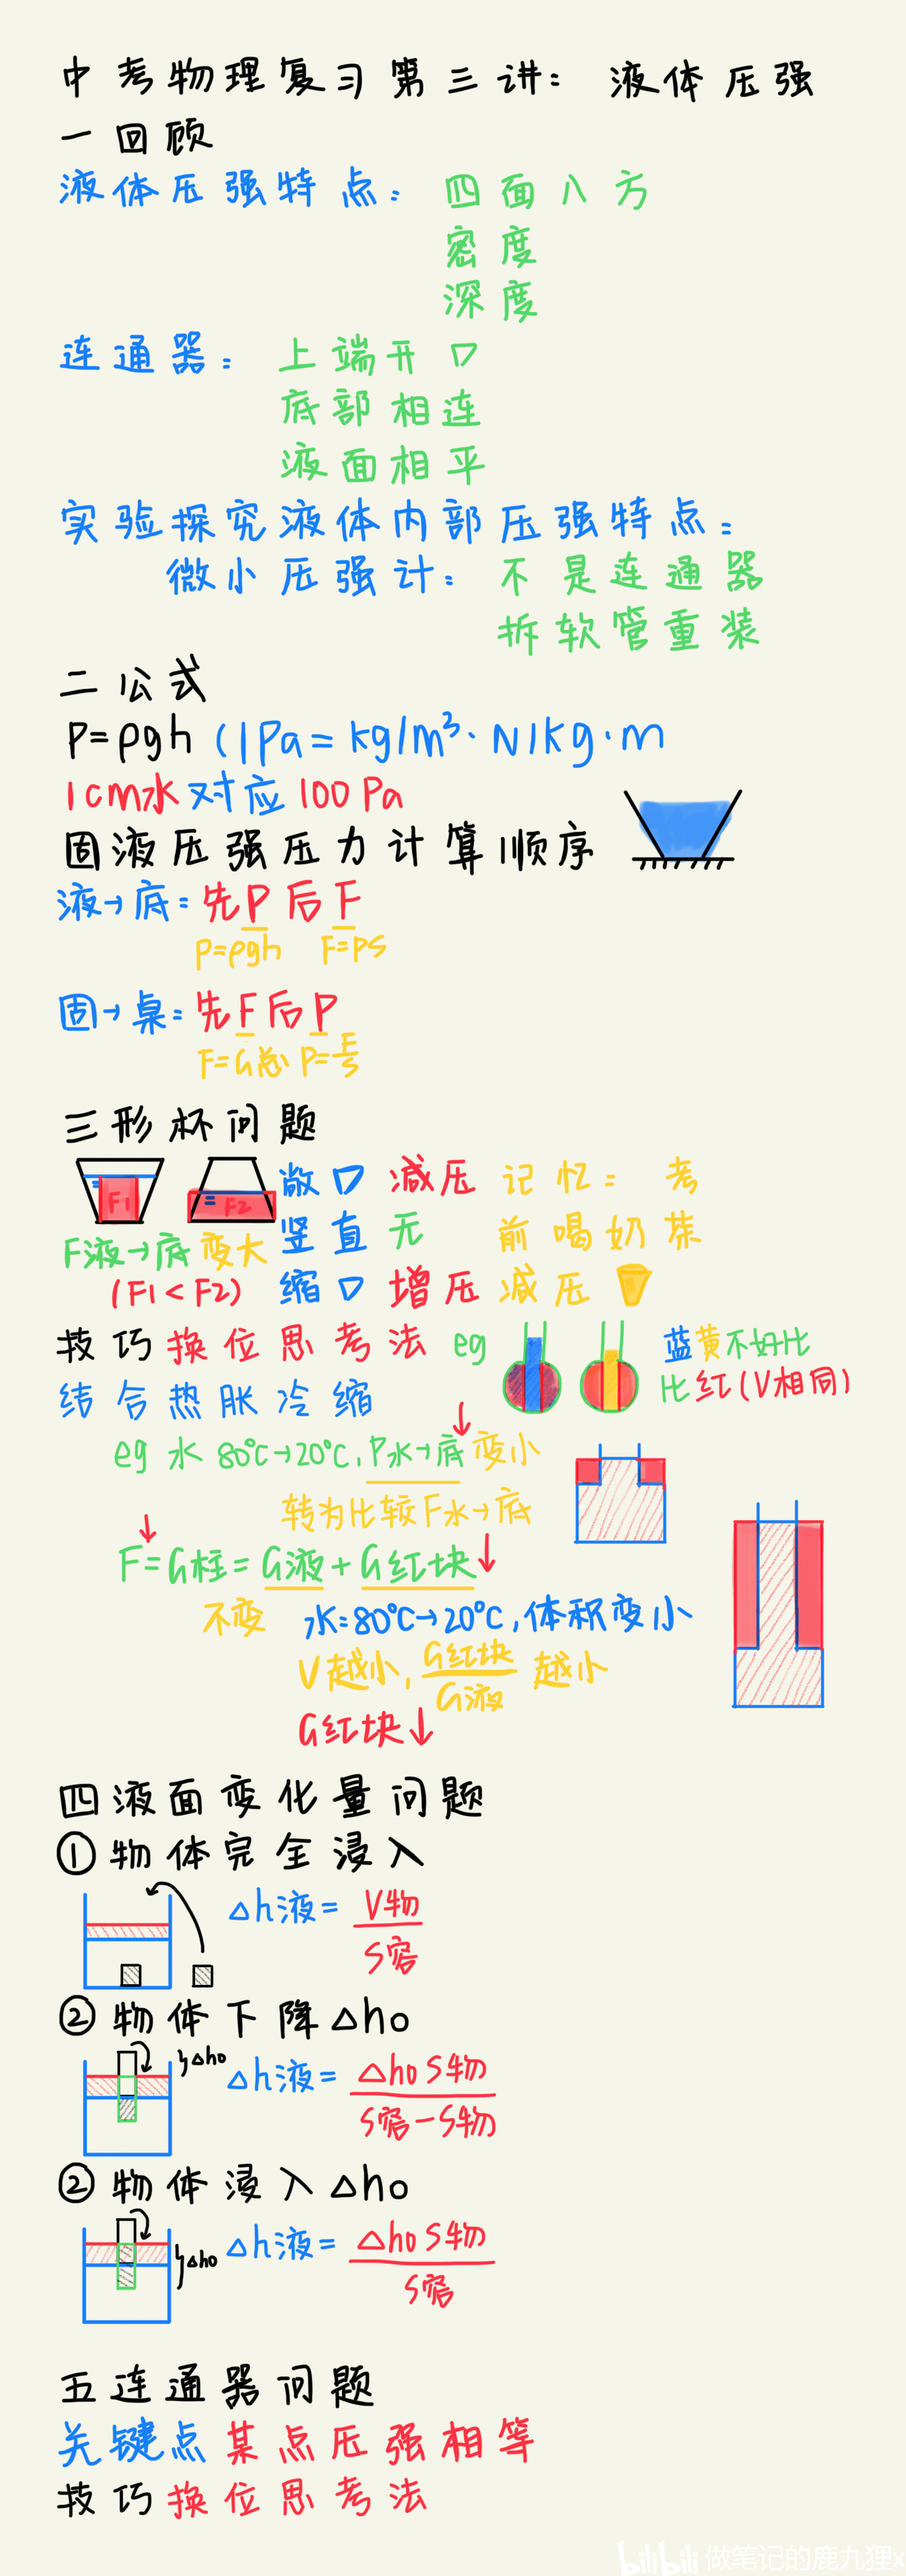 中考物理复习第三讲：液体压强
一回顾
液体压强特点：四面八方
密度
深度
连通器：上端开口
底部相连
液面相平
实验探究液体内部压强特点：
微小压强计：不是连通器
拆软管重装
二公式
P=ρgh (1Pa=kg/m³·N/kg·m
1cm水对应100Pa
固液压强压力计算顺序
液→底：先P后F
P=ρgh F=PS
固→桌：先F后P
F=G总 P=F/S
三形杯问题
F1 F2 敞口 减压 记忆：考
F液→底 变大 竖直 无 前喝奶茶
(F1<F2) 缩口 增压 减压
技巧换位思考法 eg 蓝黄不好比
结合热胀冷缩 比红(V相同)
eg 水 80℃→20℃，P水→底 变小
转为比较F水→底
F=G柱=G液+G红块↓
不变 水:80℃→20℃，体积变小
V越小，G红块/G液 越小
G红块↓
四液面变化量问题
①物体完全浸入
△h液=V物/S容
②物体下降△h0
△h0 △h液=△h0S物/S容-S物
②物体浸入△h0
△h0 △h液=△h0S物/S容
五连通器问题
关键点某点压强相等
技巧换位思考法
bilibili 做笔记的鹿九狸x